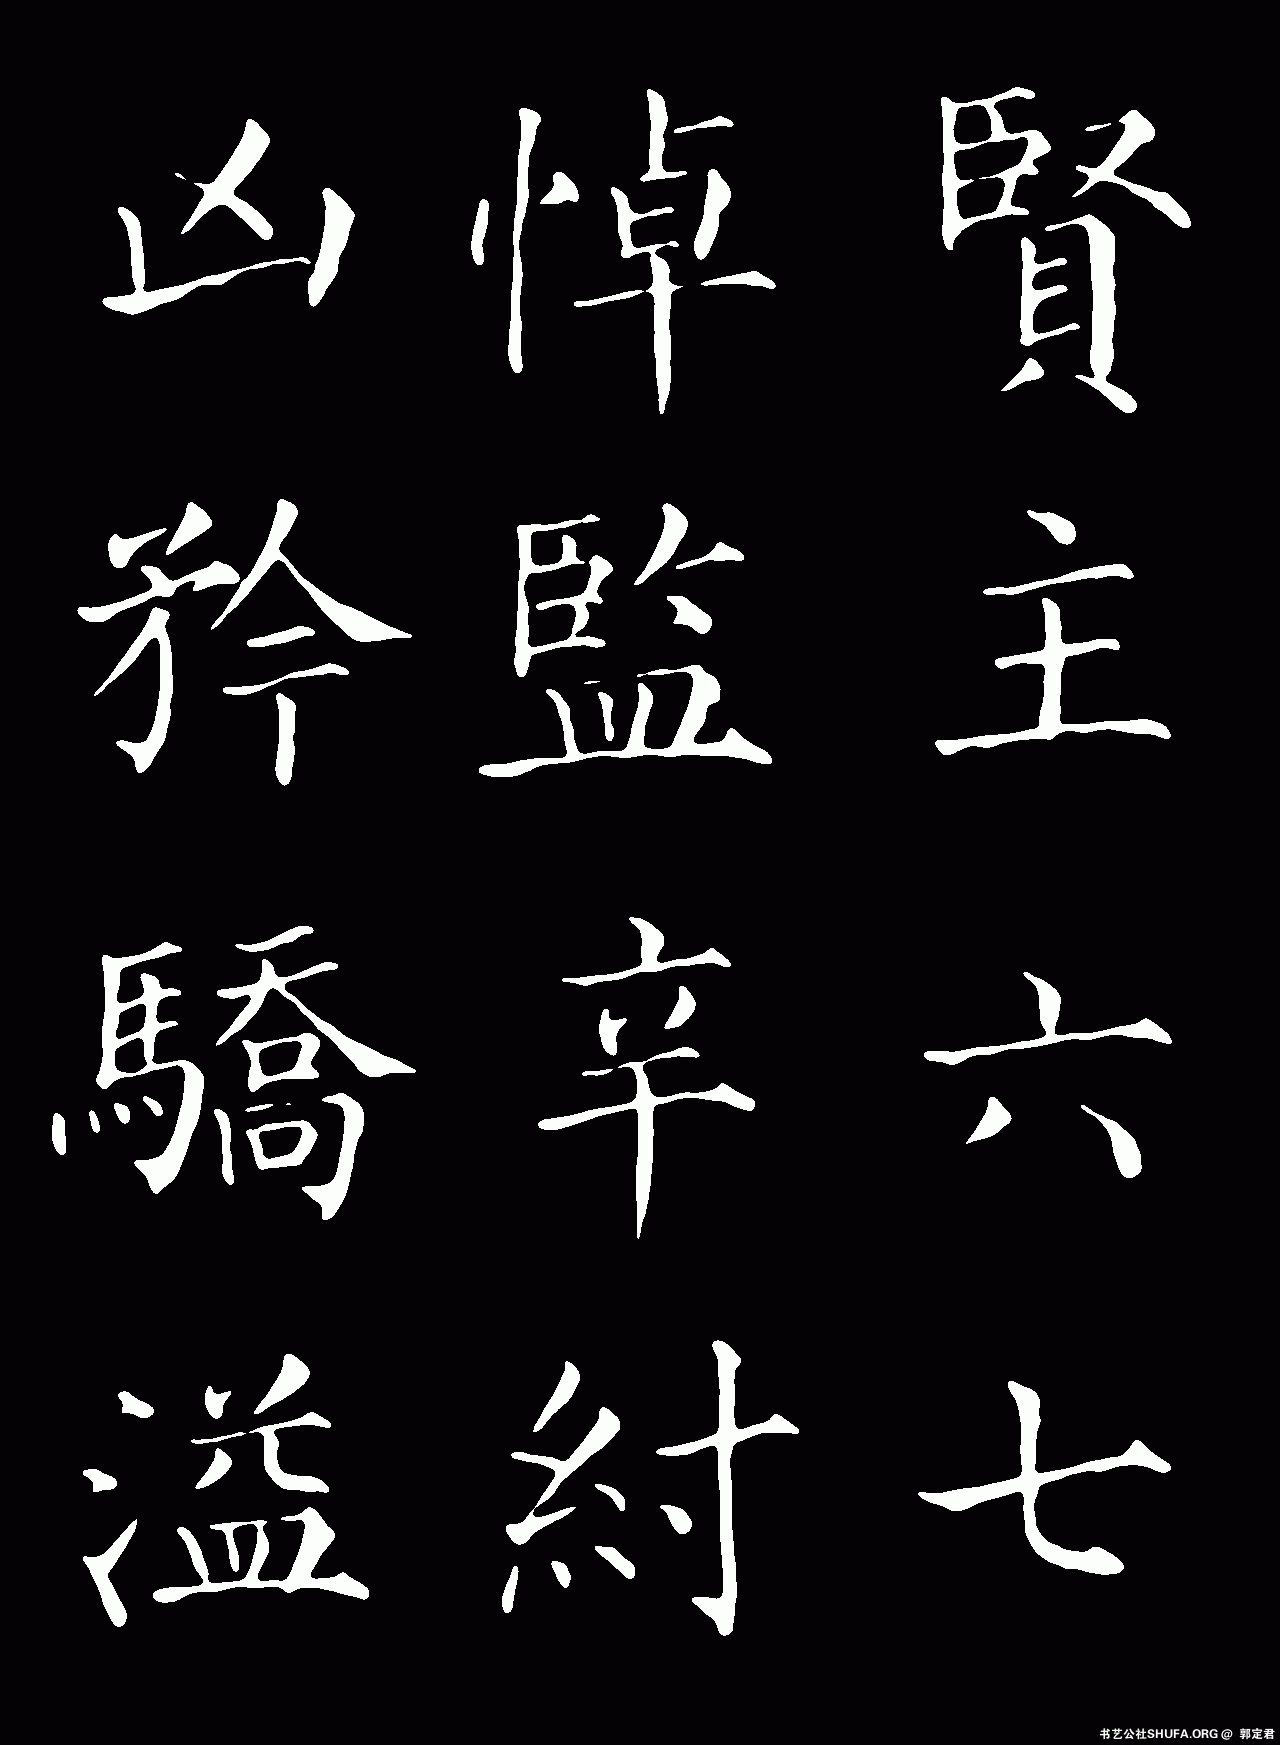 賢主六七
悼監辛紂
凶矜驕溢
书艺公社SHUFA.ORG @ 郭定君